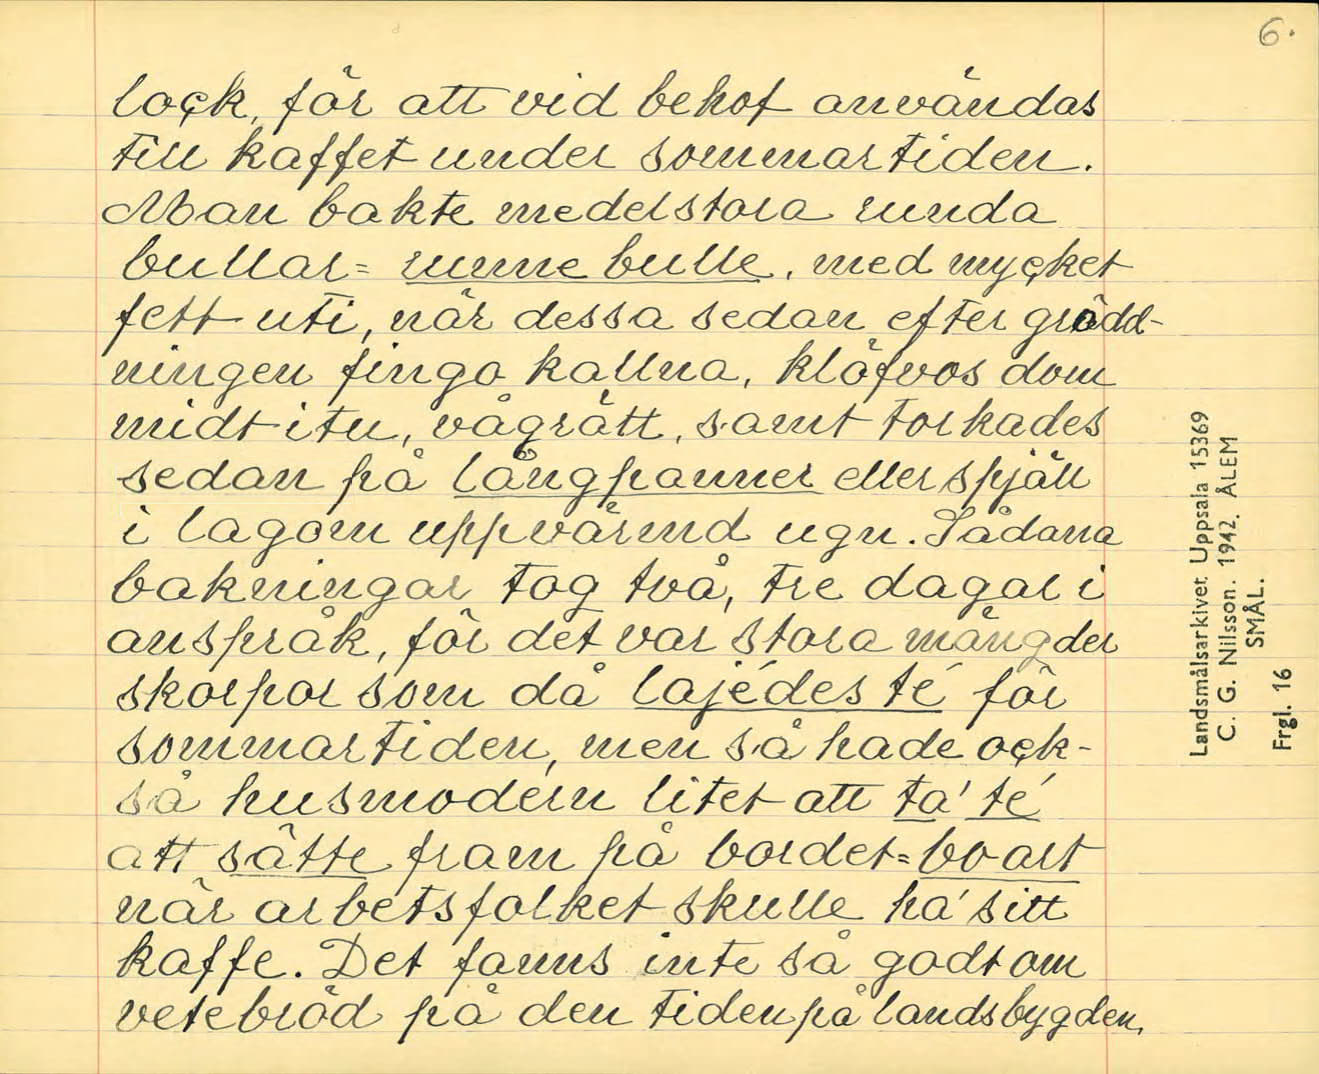 6.
lock, för att vid behof användas
till kaffet under sommartiden.
Man bakte medelstora runda
bullar = runne bulle, med mycket
fett uti, när dessa sedan efter grädd-
ningen fingo kallna, klöfvos dom
midt itu, vågrätt, samt torkades
sedan på långpanner eller spjäll
i lagom uppvärmd ugn. Sådana
bakningar tog två, tre dagar i
anspråk, för det var stora mängder
skorpor som då lajédes té för
sommartiden, men så hade ock-
så husmodern litet att ta' té
att sätte fram på bordet = boart
när arbetsfolket skulle ha' sitt
kaffe. Det fanns inte så godt om
vetebröd på den tiden på landsbygden,
Landsmålsarkivet Uppsala 15369
C. G. Nilsson. 1942. ÅLEM
SMÅL.
Frgl. 16